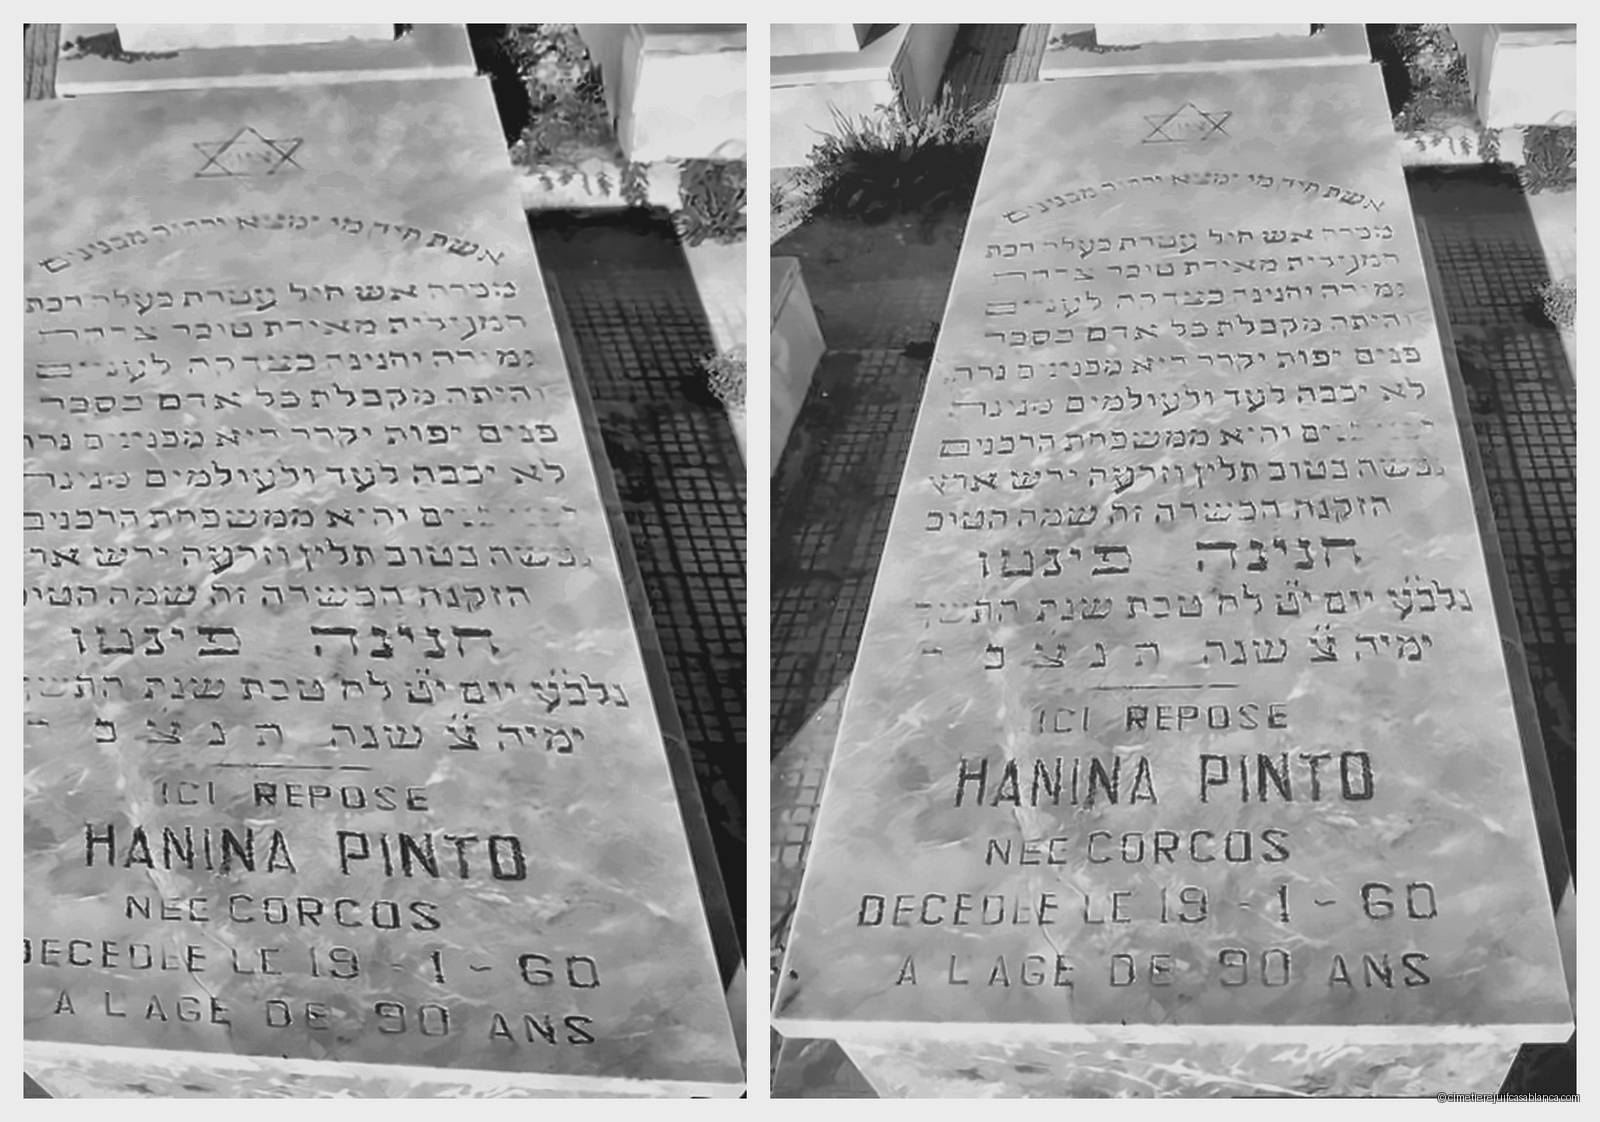 ציון
אשת חיל מי ימצא ורחוק מפנינים
אשת חיל עטרת בעלה רבת
בצדקה לעניים
והיתה מקבלת כל אדם בסבר
פנים יפות יקרה היא מפנינים נרה
לא יכבה לעד ולעולמים
והיא ממשפחת הרבנים
נפשה בטוב תלין וזרעה ירש
הזקנה הכשרה זה שמה
חנינה פינטו
נלב״ע יום י״ט לח׳ טבת שנת
ימיה צ׳ שנה ת נ צ ב
ICI REPOSE
HANINA PINTO
NEE CORCOS
DECEDEE LE 19 - 1 - 60
A L AGE DE 90 ANS
ציון
אשת חיל מי ימצא ורחוק מפנינים
אשת חיל עטרת בעלה רבת
בצדקה לעניים
והיתה מקבלת כל אדם בסבר
פנים יפות יקרה היא מפנינים נרה
לא יכבה לעד ולעולמים
והיא ממשפחת הרבנים
נפשה בטוב תלין וזרעה ירש ארץ
הזקנה הכשרה זה שמה הטוב
חנינה פינטו
נלב״ע יום י״ט לח׳ טבת שנת התשך
ימיה צ׳ שנה ת נ צ ב ה
ICI REPOSE
HANINA PINTO
NEE CORCOS
DECEDEE LE 19 - 1 - 60
A L AGE DE 90 ANS
©cimetierejuifcasablanca.com